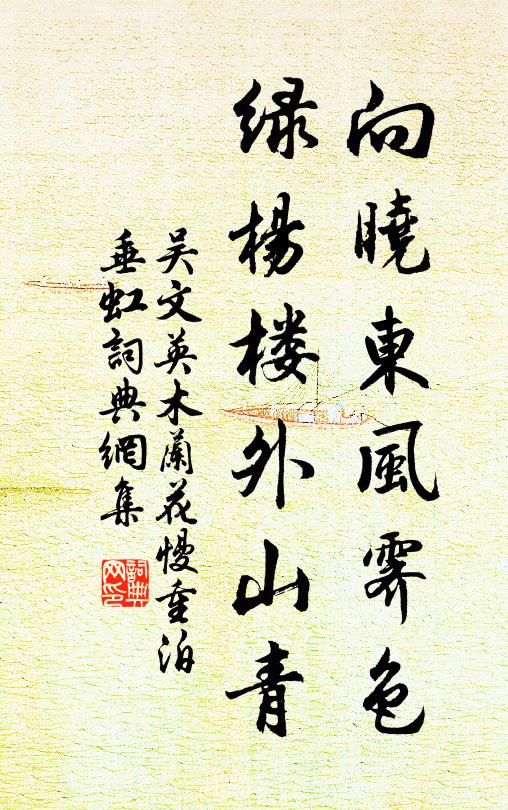 向曉東風霽色
绿楊楼外山青
吴文英木蘭花慢重泊
垂虹詞典網集
詞典网印